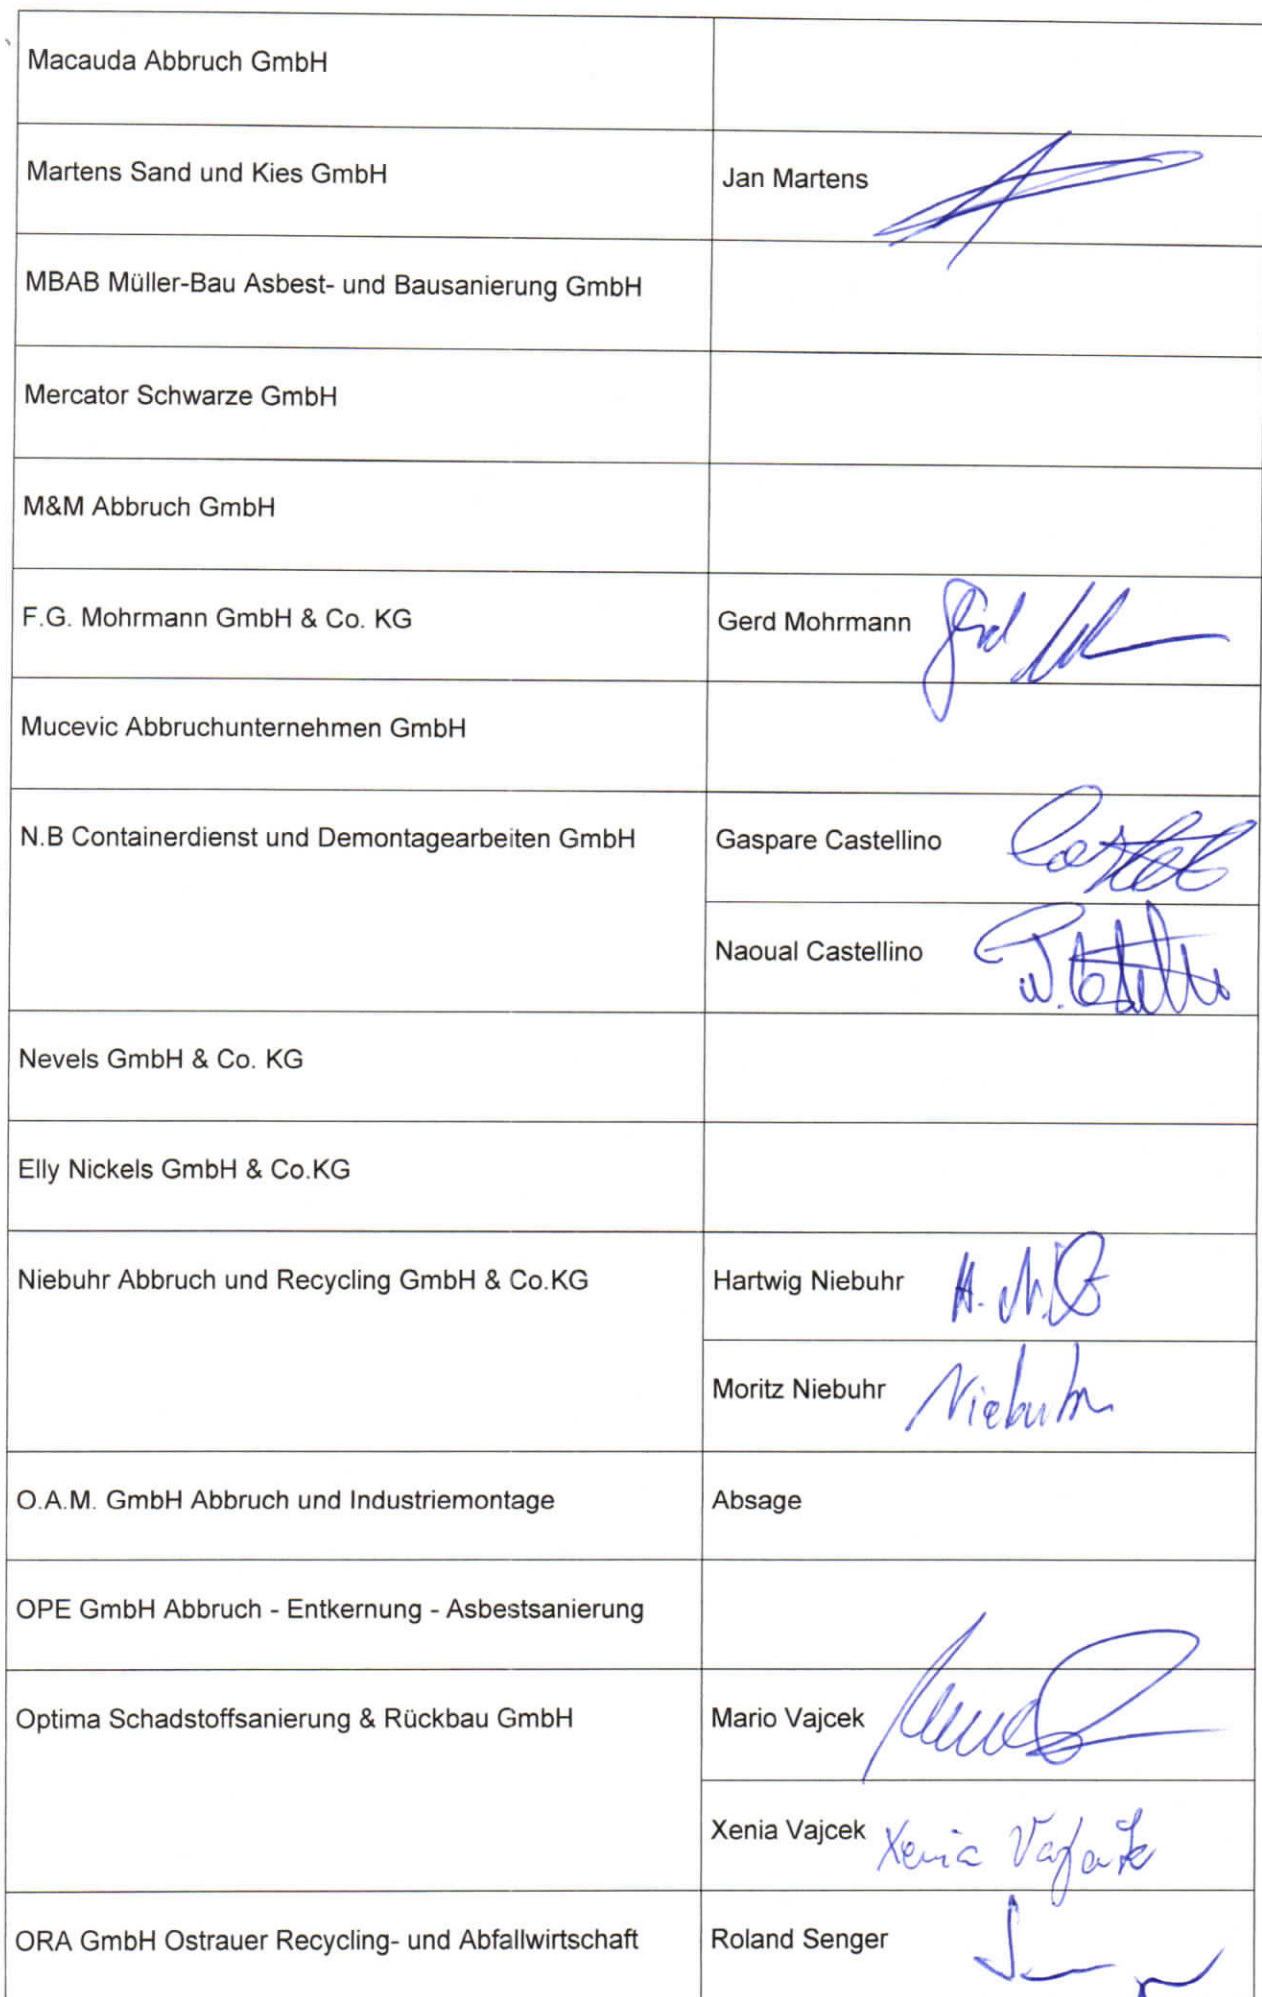 Macauda Abbruch GmbH
Martens Sand und Kies GmbH Jan Martens
MBAB Müller-Bau Asbest- und Bausanierung GmbH
Mercator Schwarze GmbH
M&M Abbruch GmbH
F.G. Mohrmann GmbH & Co. KG Gerd Mohrmann
Mucevic Abbruchunternehmen GmbH
N.B Containerdienst und Demontagearbeiten GmbH Gaspare Castellino
Naoual Castellino
Nevels GmbH & Co. KG
Elly Nickels GmbH & Co.KG
Niebuhr Abbruch und Recycling GmbH & Co.KG Hartwig Niebuhr
Moritz Niebuhr Niebuhr
O.A.M. GmbH Abbruch und Industriemontage Absage
OPE GmbH Abbruch - Entkernung - Asbestsanierung
Optima Schadstoffsanierung & Rückbau GmbH Mario Vajcek
Xenia Vajcek Xenia Vajcek
ORA GmbH Ostrauer Recycling- und Abfallwirtschaft Roland Senger